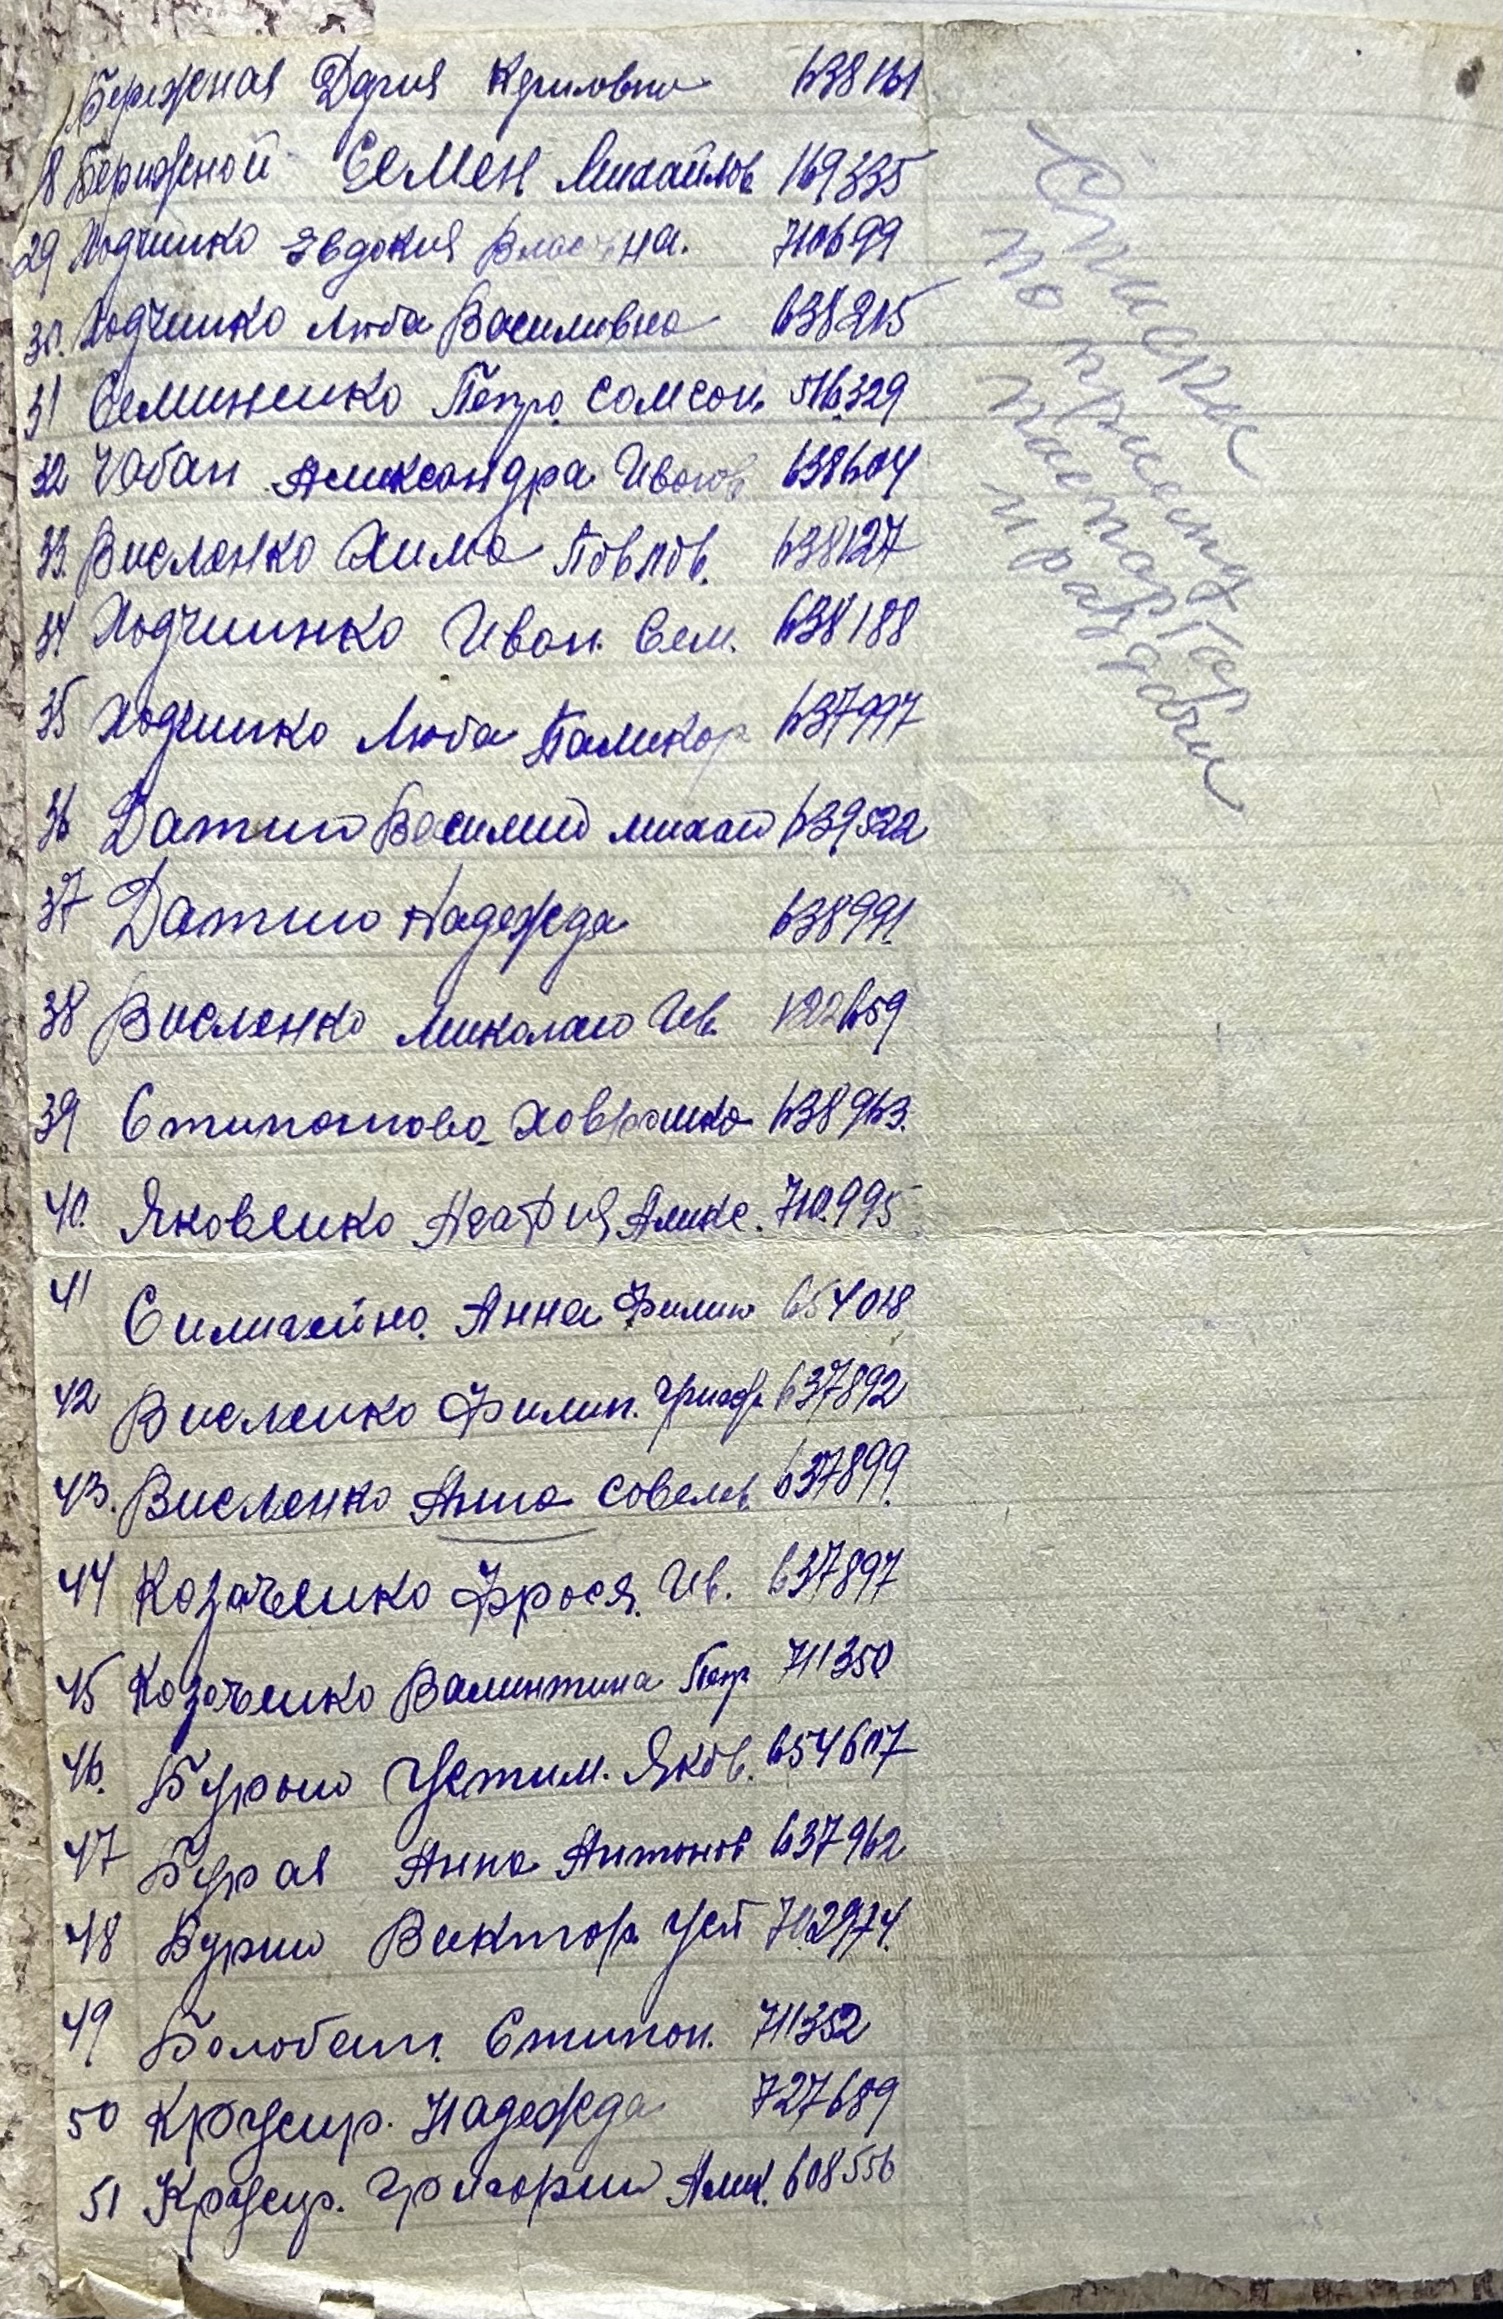 Бережная Дария Кериловна 638161
8 Бережной Семен Михайлов 169335
29 Ходчинко Евдокия 710699
30. Ходчинко Люба Василивна 638215
31 Семиненко Петро Самсон. 516329
32 Чобан Александра Иванов 638604
33. Висленко Хима Повлов. 638127
34 Ходчиинко Иван. Сем. 638188
35 Ходчинко Люба 637997
36 Датиш Василий михай 639522
37 Датиш Надежда 638991.
38 Висленко Миколай Ив. 122659
39 Стипонова 638963.
40. Яковенко Агафия Алике. 710.995
41 Анна Филип 654018
42 Висленко Филип. Григор 637892
43. Висленко Анна Совелев. 637899.
44 Козаченко Фрося. Ив. 637897
45 Козаченко Валинтина Петр 711350
46. Бурый Устим. Яков. 654607
47 Бурая Анна Антонов 637962
48 Бурый Виктор. Уст 712974.
49 Стипон. 711352
50 Надежда 727689
51 Григорий Алек. 608556
Списки
по приему
паспортов
и раздачи